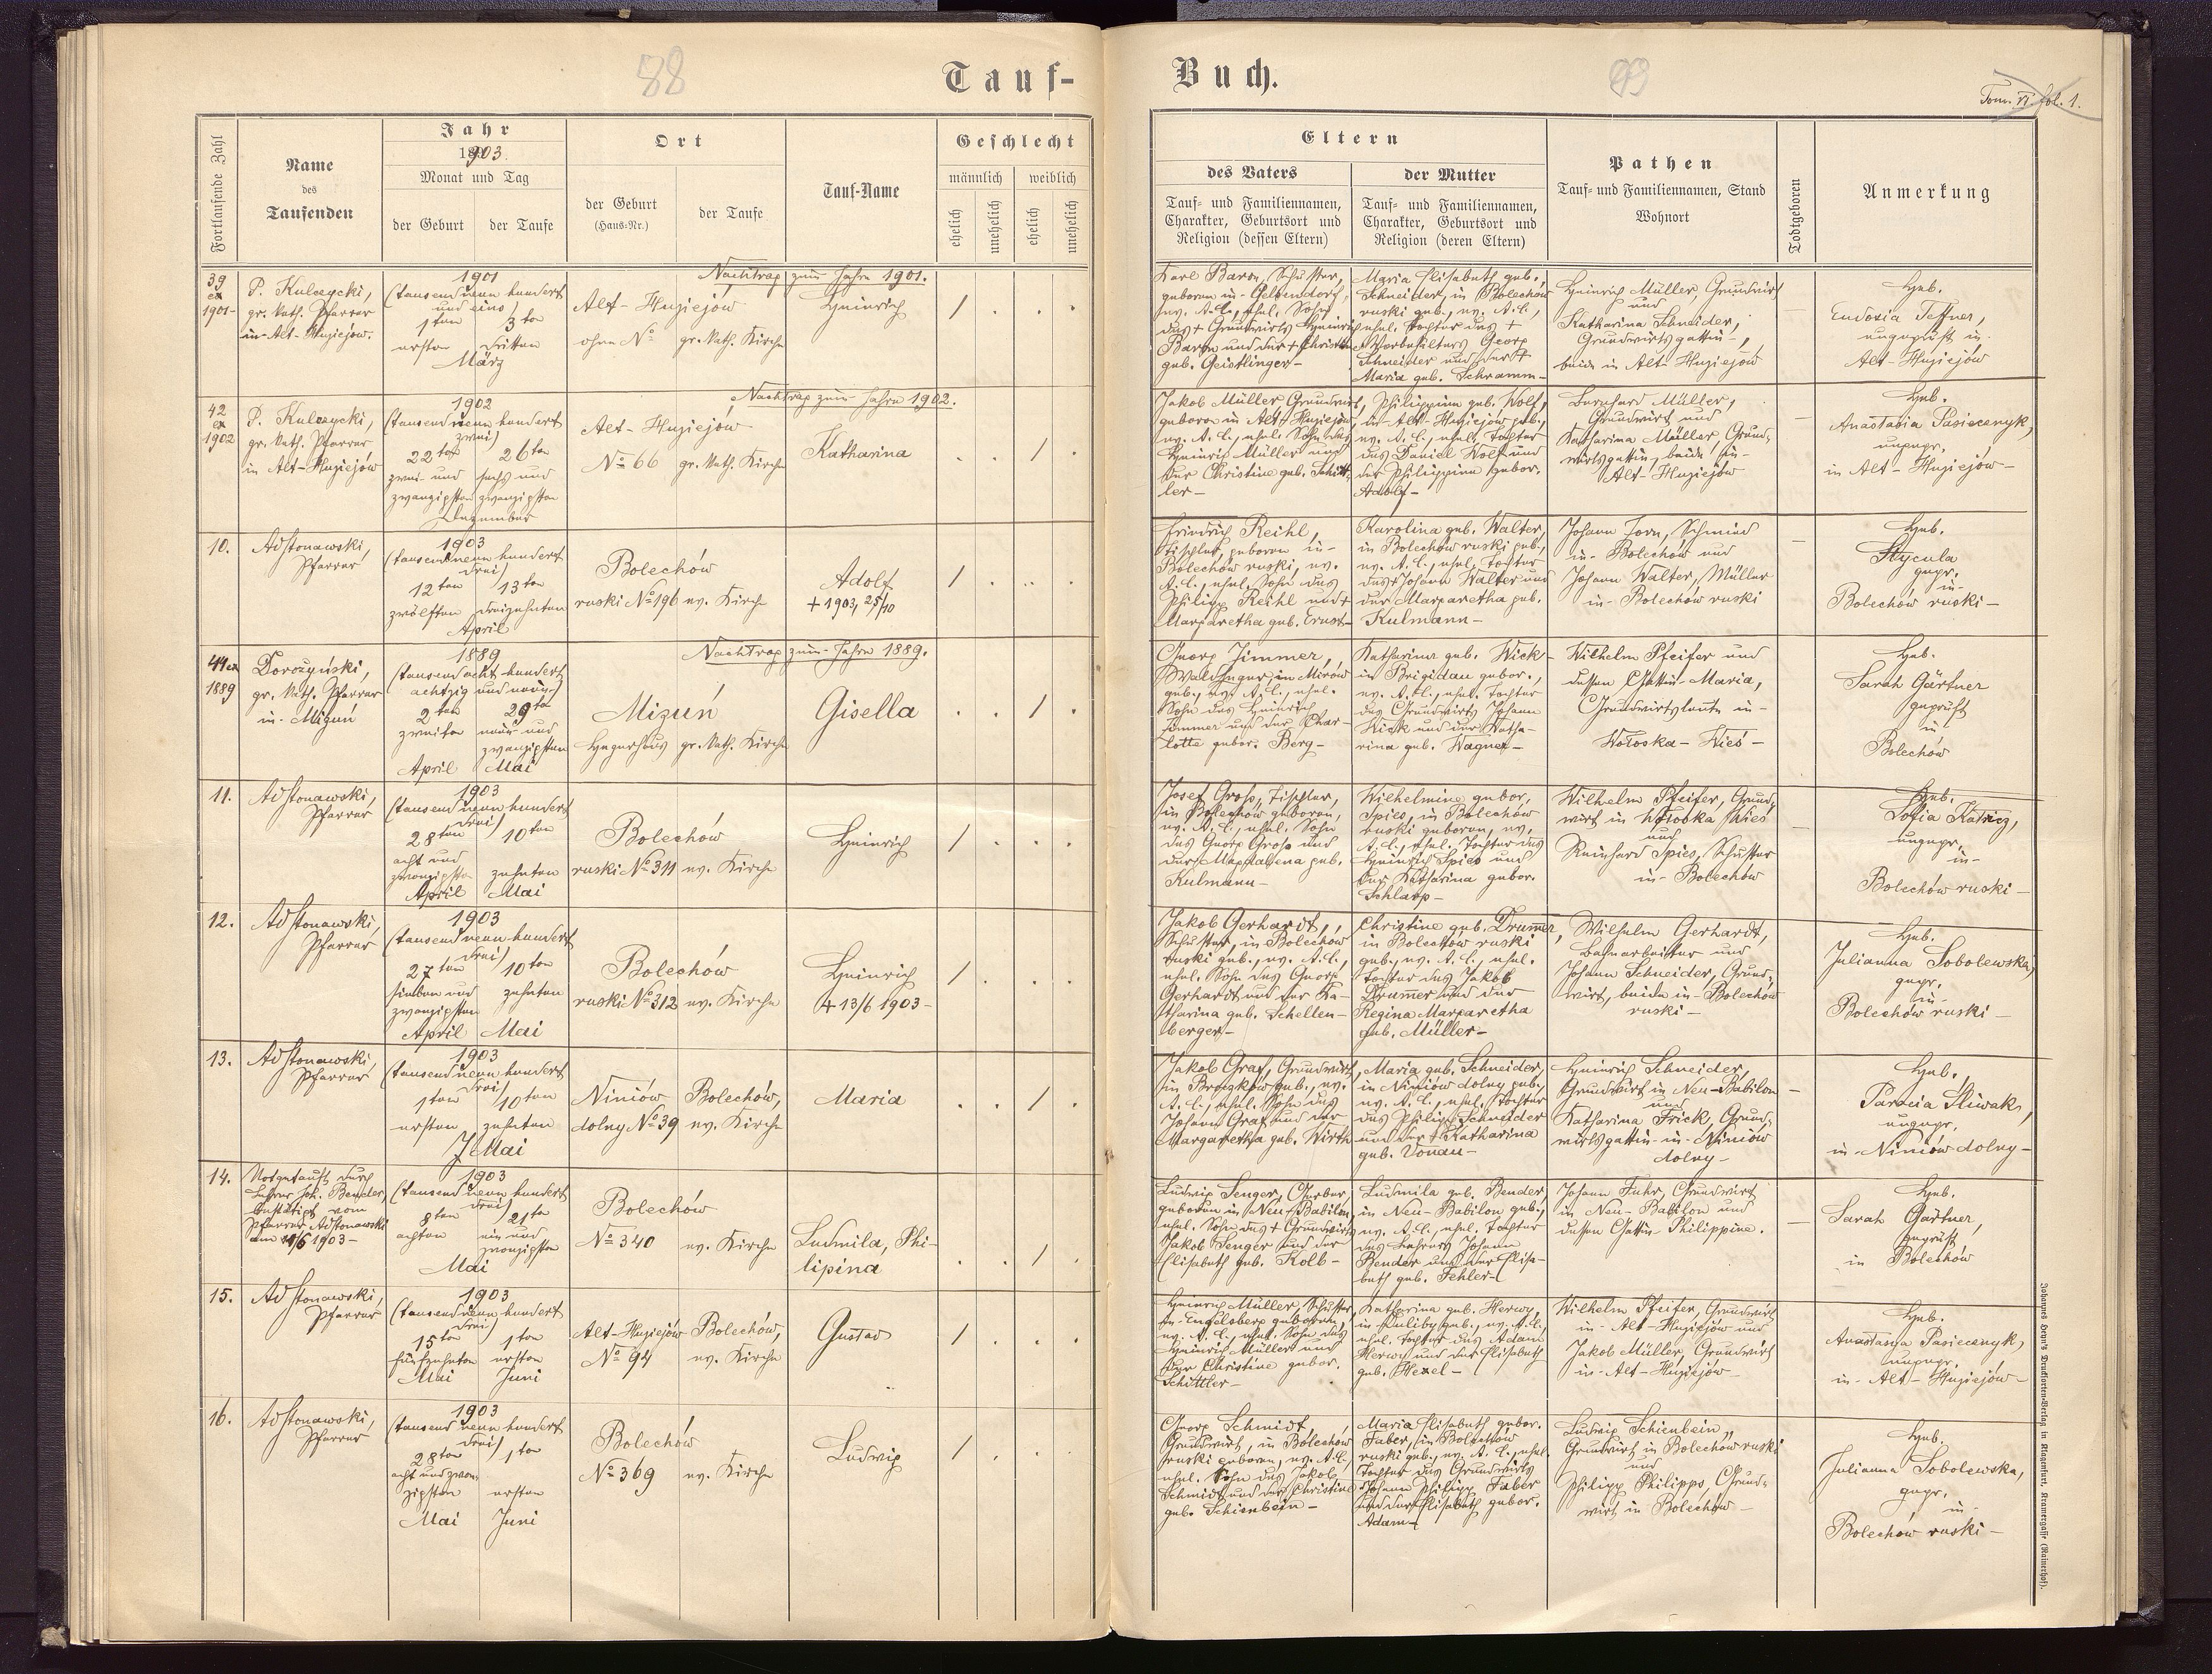 88
Tauf-
Fortlaufende Zahl
Name
des
Taufenden
Jahr
1903.
Monat und Tag
der Geburt
der Taufe
Ort
der Geburt
(Haus-Nr.)
der Taufe
Tauf-Name
Geschlecht
männlich
weiblich
ehelich
unehelich
ehelich
unehelich
Nachtrag zum Jahre 1901.
39
ex
1901-
P. Kulczycki,
gr. kath. Pfarrer
in Alt-Hujiejów.
1901
(tausend neun hundert
und eins)
1ten 3ten
ersten dritten
März
Alt-Hujiejów
ohne No gr. kath. Kirche
Heinrich
Nachtrag zum Jahre 1902.
42
ex
1902
P. Kulczycki,
gr. kath. Pfarrer
in Alt-Hujiejów
1902
(tausend neun hundert
zwei)
22ten 26ten
zwei- und sechs und
zwanzigsten zwanzigsten
Dezember
Alt-Hujiejów
No 66 gr. kath. Kirche
Katharina
10.
Adstonawski,
Pfarrer
1903
(tausend neun hundert
drei)
12ten 13ten
zwölften dreizehnten
April
Bolechów
ruski No 196 ev. Kirche
Adolf
+ 1903, 25/10
Nachtrag zum Jahre 1889.
44 ex
1889
Dorożyński,
gr. kath. Pfarrer
in Mizuń
1889
(tausend acht hundert
achtzig und neun)
2ten 29ten
zweiten neun und
zwanzigsten
April Mai
Mizuń
Hegerhaus gr. kath. Kirche
Gisella
11.
Adstonawski,
Pfarrer
1903
(tausend neun hundert
drei)
28ten 10ten
acht und
zwanzigsten zehnten
April Mai
Bolechów
ruski No 311 ev. Kirche
Heinrich
12.
Adstonawski,
Pfarrer
1903
(tausend neun hundert
drei)
27ten 10ten
sieben und zehnten
zwanzigsten
April Mai
Bolechów
ruski No 312 ev. Kirche
Heinrich
+ 13/6 1903-
13.
Adstonawski,
Pfarrer
1903
(tausend neun hundert
drei)
1ten 10ten
ersten zehnten
Mai
Niniów Bolechów,
dolny No 39 ev. Kirche
Maria
14.
Notgetauft durch
Lehrer Joh. Bender,
bestätigt vom
Pfarrer Adstonawski
am 1903-
1903
(tausend neun hundert
drei)
8ten 21ten
achten ein und
zwanzigsten
Mai
Bolechów
No 340 ev. Kirche
Ludmila, Phi-
lipina
15.
Adstonawski,
Pfarrer
1903
(tausend neun hundert
drei)
15ten 1ten
fünfzehnten ersten
Mai Juni
Alt-Hujiejów Bolechów,
No 94 ev. Kirche
Gustav
16.
Adstonawski,
Pfarrer
1903
(tausend neun hundert
drei)
28ten 1ten
acht und zwan-
zigsten ersten
Mai Juni
Bolechów
No 369 ev. Kirche
Ludwig
Buch.
93
Tom. VI fol. 1.
Eltern
des Vaters
Tauf- und Familiennamen,
Charakter, Geburtsort und
Religion (dessen Eltern)
der Mutter
Tauf- und Familiennamen,
Charakter, Geburtsort und
Religion (deren Eltern)
Pathen
Tauf- und Familiennamen, Stand
Wohnort
Todtgeboren
Anmerkung
Karl Baron, Schuster,
geboren in Gelsendorf,
ev. A. C., ehel. Sohn
des + Grundwirts Heinrich
Baron und der + Christine
geb. Geistlinger-
Maria Elisabeth geb.
Schneider, in Bolechów
ruski geb., ev. A. C.,
ehel. Tochter des +
Vorbesitters Georg
Schneider und der +
Maria geb. Schramm-
Heinrich Müller, Grundwirt
und
Katharina Schneider,
Grundwirtsgattin-,
beide in Alt-Hujiejów
Heb.
Eudoxia Teffner,
ungeprüft in
Alt-Hujiejów
Jakob Müller Grundwirt,
geboren in Alt-Hujiejów,
ev. A. C., ehel. Sohn des
Heinrich Müller und
der Christine geb. Schitt-
ler-
Philippina geb. Wolf,
in Alt-Hujiejów geb.,
ev. A. C., ehel. Tochter
des Daniel Wolf und
der Philippina gebor.
Adolf-
Bernhard Müller,
Grundwirt und
Katharina Müller, Grund-
wirtsgattin, beide in
Alt-Hujiejów
Heb.
Anastasia Pasiecznyk,
ungepr.
in Alt-Hujiejów-
Friedrich Reihl,
Tischler, geboren in
Bolechów ruski, ev.
A. C., ehel. Sohn des
Philipp Reihl und +
Margaretha geb. Ernst-
Karolina geb. Walter,
in Bolechów ruski geb.,
ev. A. C., ehel. Tochter
des + Johann Walter und
der Margaretha geb.
Kulmann-
Johann Forn, Schmied
in Bolechów und
Johann Walter, Müller
in Bolechów ruski
Heb.
Stycula
gepr.
in
Bolechów ruski-
Georg Zimmer,
Waldheger, in Mirów
geb., ev. A. C., ehel.
Sohn des Heinrich
Zimmer und der Char-
lotte gebor. Berg-
Katharina geb. Wick-
in Brigidau gebor.,
ev. A. C., ehel. Tochter
des Grundwirts Johann
Wick und der Katha-
rina geb. Wagner-
Wilhelm Pfeifer und
dessen Gattin Maria,
Grundwirtsleute in
Wołoska-Wieś-
Heb.
Sarah Gärtner
geprüft
in
Bolechów
Josef Groß, Tischler,
in Bolechów geboren,
ev. A. C., ehel. Sohn
des Georg Groß und
der Magdalena geb.
Kulmann-
Wilhelmine gebor.
Spies, in Bolechów
ruski geboren, ev.
A. C., ehel. Tochter des
Heinrich Spies und
der Katharina gebor.
Schlarp-
Wilhelm Pfeifer, Grund-
wirt in Wołoska Wieś
und
Reinhard Spies, Schuster
in Bolechów
Heb.
Sofia Katricz,
ungepr.
in
Bolechów ruski-
Jakob Gerhardt,
Schuster, in Bolechów
ruski geb., ev. A. C.,
ehel. Sohn des Georg
Gerhardt und der Ka-
tharina geb. Schellen-
berger-
Christine geb. Drumer,
in Bolechów ruski
geb., ev. A. C., ehel.
Tochter des Jakob
Drumer und der
Regina Margaretha
geb. Müller-
Wilhelm Gerhardt,
Bahnarbeiter und
Johann Schneider, Grund-
wirt, beide in Bolechów
ruski-
Heb.
Julianna Sobolewska,
gepr.
in
Bolechów ruski-
Jakob Graf, Grundwirt,
in Broczków geb., ev.
A. C., ehel. Sohn des
Johann Graf und der
Margaretha geb. Wirth
Maria geb. Schneider,
in Niniów dolny geb.,
ev. A. C., ehel. Tochter
des Philipp Schneider
und der + Katharina
geb. Vonau-
Heinrich Schneider,
Grundwirt in Neu-Babilon
und
Katharina Frick, Grund-
wirtsgattin in Niniów
dolny-
Heb.
Paracia Sliwak,
ungepr.
in Niniów dolny-
Ludwig Senger, Gerber,
geboren in Neu-Babilon,
ehel. Sohn des + Grundwirts
Jakob Senger und der
Elisabeth geb. Kolb-
Ludmila geb. Bender,
in Neu-Babilon geb.,
ev. A. C., ehel. Tochter
des Lehrers Johann
Bender und der Elisa-
beth geb. Fehler-
Johann Fuhr, Grundwirt
in Neu-Babilon und
dessen Gattin Philippine.
Heb.
Sarah Gärtner,
geprüft
in Bolechów
Heinrich Müller, Schuster,
in Engelsberg geboren,
ev. A. C., ehel. Sohn des
Heinrich Müller und
der Christine gebor.
Schittler-
Katharina geb. Herwy,
in Duliby geb., ev. A. C.,
ehel. Tochter des Adam
Herwy und der Elisabeth
geb. Hexel-
Wilhelm Pfeifer, Grundwirt
in Alt-Hujiejów und
Jakob Müller, Grundwirt
in Alt-Hujiejów
Heb.
Anastasia Pasiecznyk,
ungepr.
in Alt-Hujiejów-
Georg Schmidt,
Grundwirt, in Bolechów
ruski geboren, ev. A. C.,
ehel. Sohn des Jakob
Schmidt und der Christine
geb. Schienbein-
Maria Elisabeth gebor.
Faber, in Bolechów
ruski geb., ev. A. C., ehel.
Tochter des Grundwirts
Johann Philipp Faber
und der Elisabeth gebor.
Adam-
Ludwig Schienbein,
Grundwirt in Bolechów ruski
und
Philipp Philipps, Grund-
wirt in Bolechów-
Heb.
Julianna Sobolewska,
gepr.
in
Bolechów ruski-
Johannes Heyn's Drucksorten-Verlag in Klagenfurt, Kramergasse (Rainerhof).